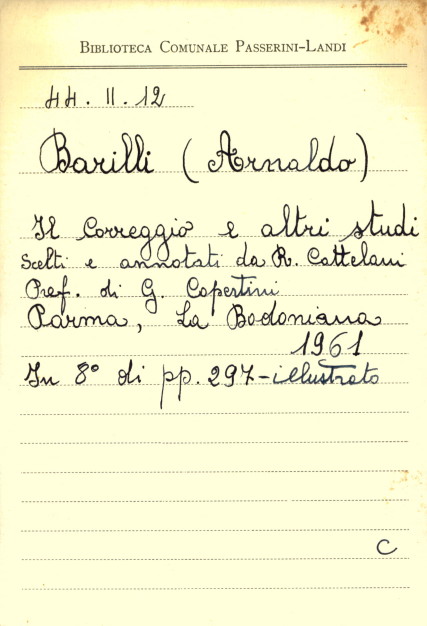 BIBLIOTECA COMUNALE PASSERINI-LANDI
44. II. 12
Barilli (Arnaldo)
Il Correggio e altri studi
Scelti e annotati da R. Cattelani
Pref. di G. Copertini
Parma, La Bodoniana
1961
In 8° di pp. 297 - illustrato
C